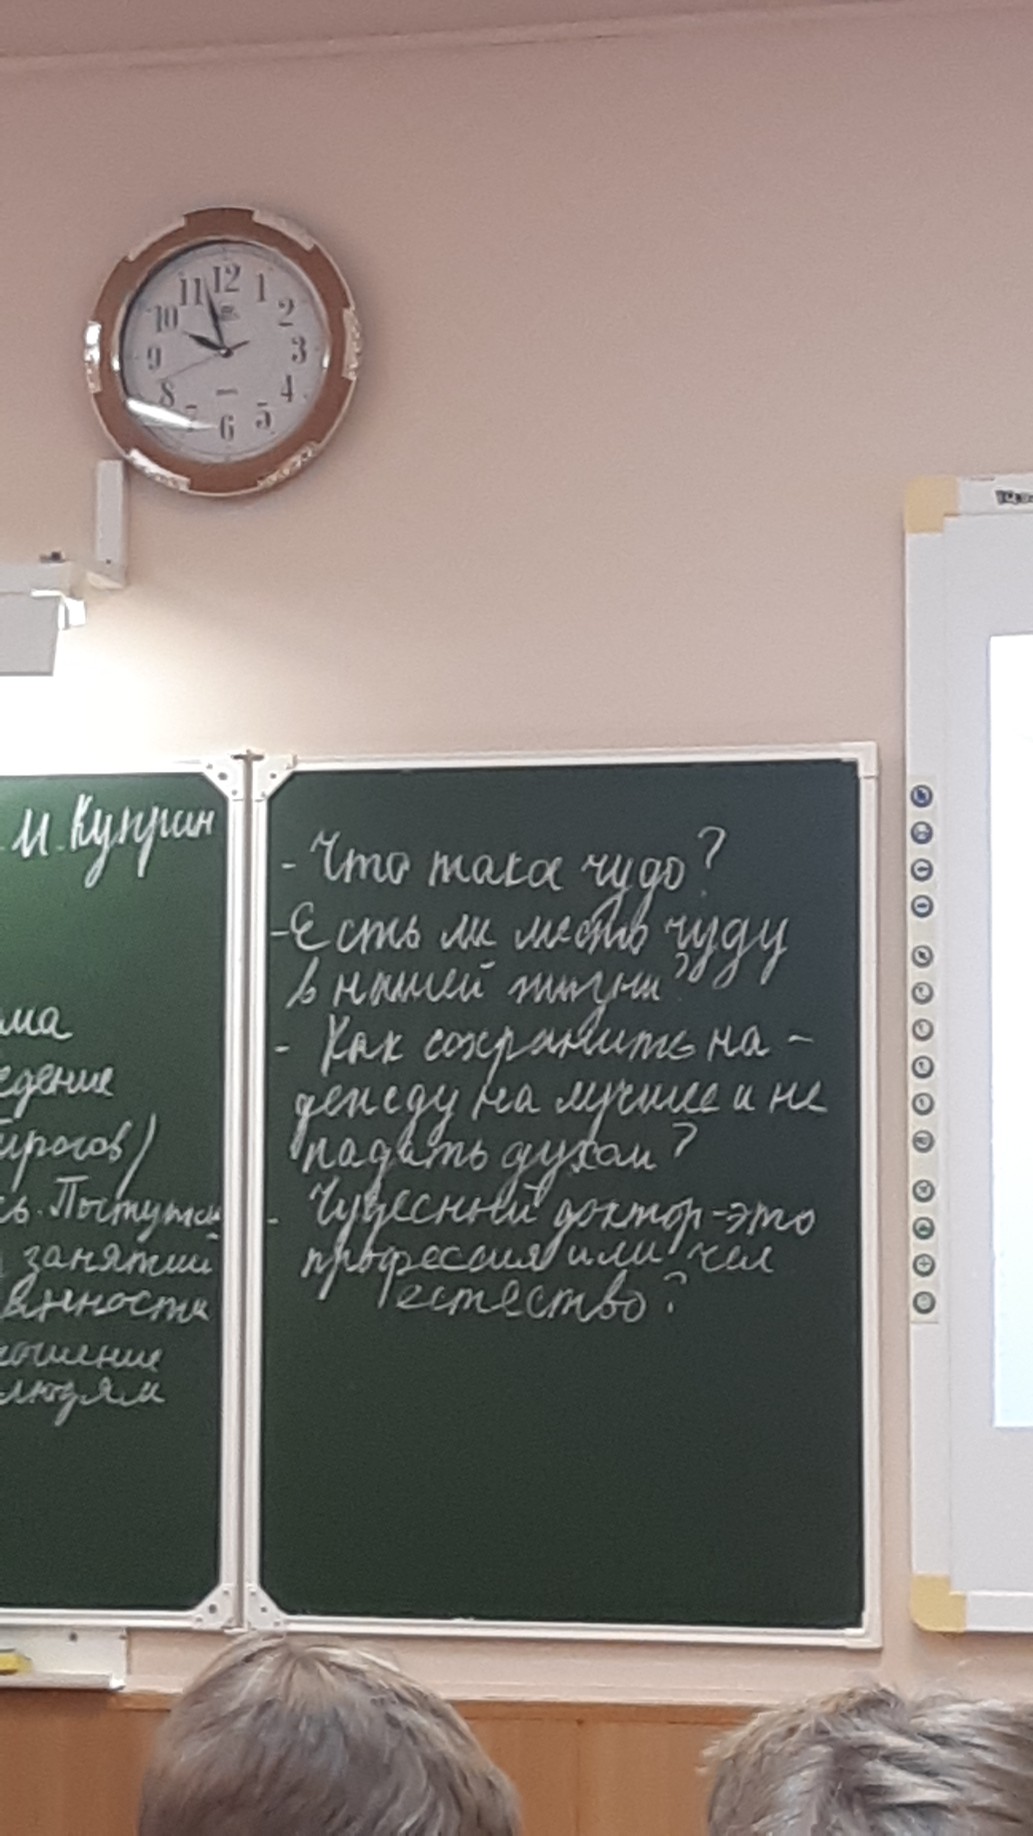 12
11
1
10
2
9
3
8
4
7
5
6
И. Куприн
ма
едение
ирогов)
сь. Поступки
занятий
венности
ношение
людям
- Что такое чудо?
- Есть ли место чуду
в нашей жизни?
- Как сохранить на-
дежду на лучшее и не
падать духом?
- Чудесный доктор - это
профессия или чел
естество?